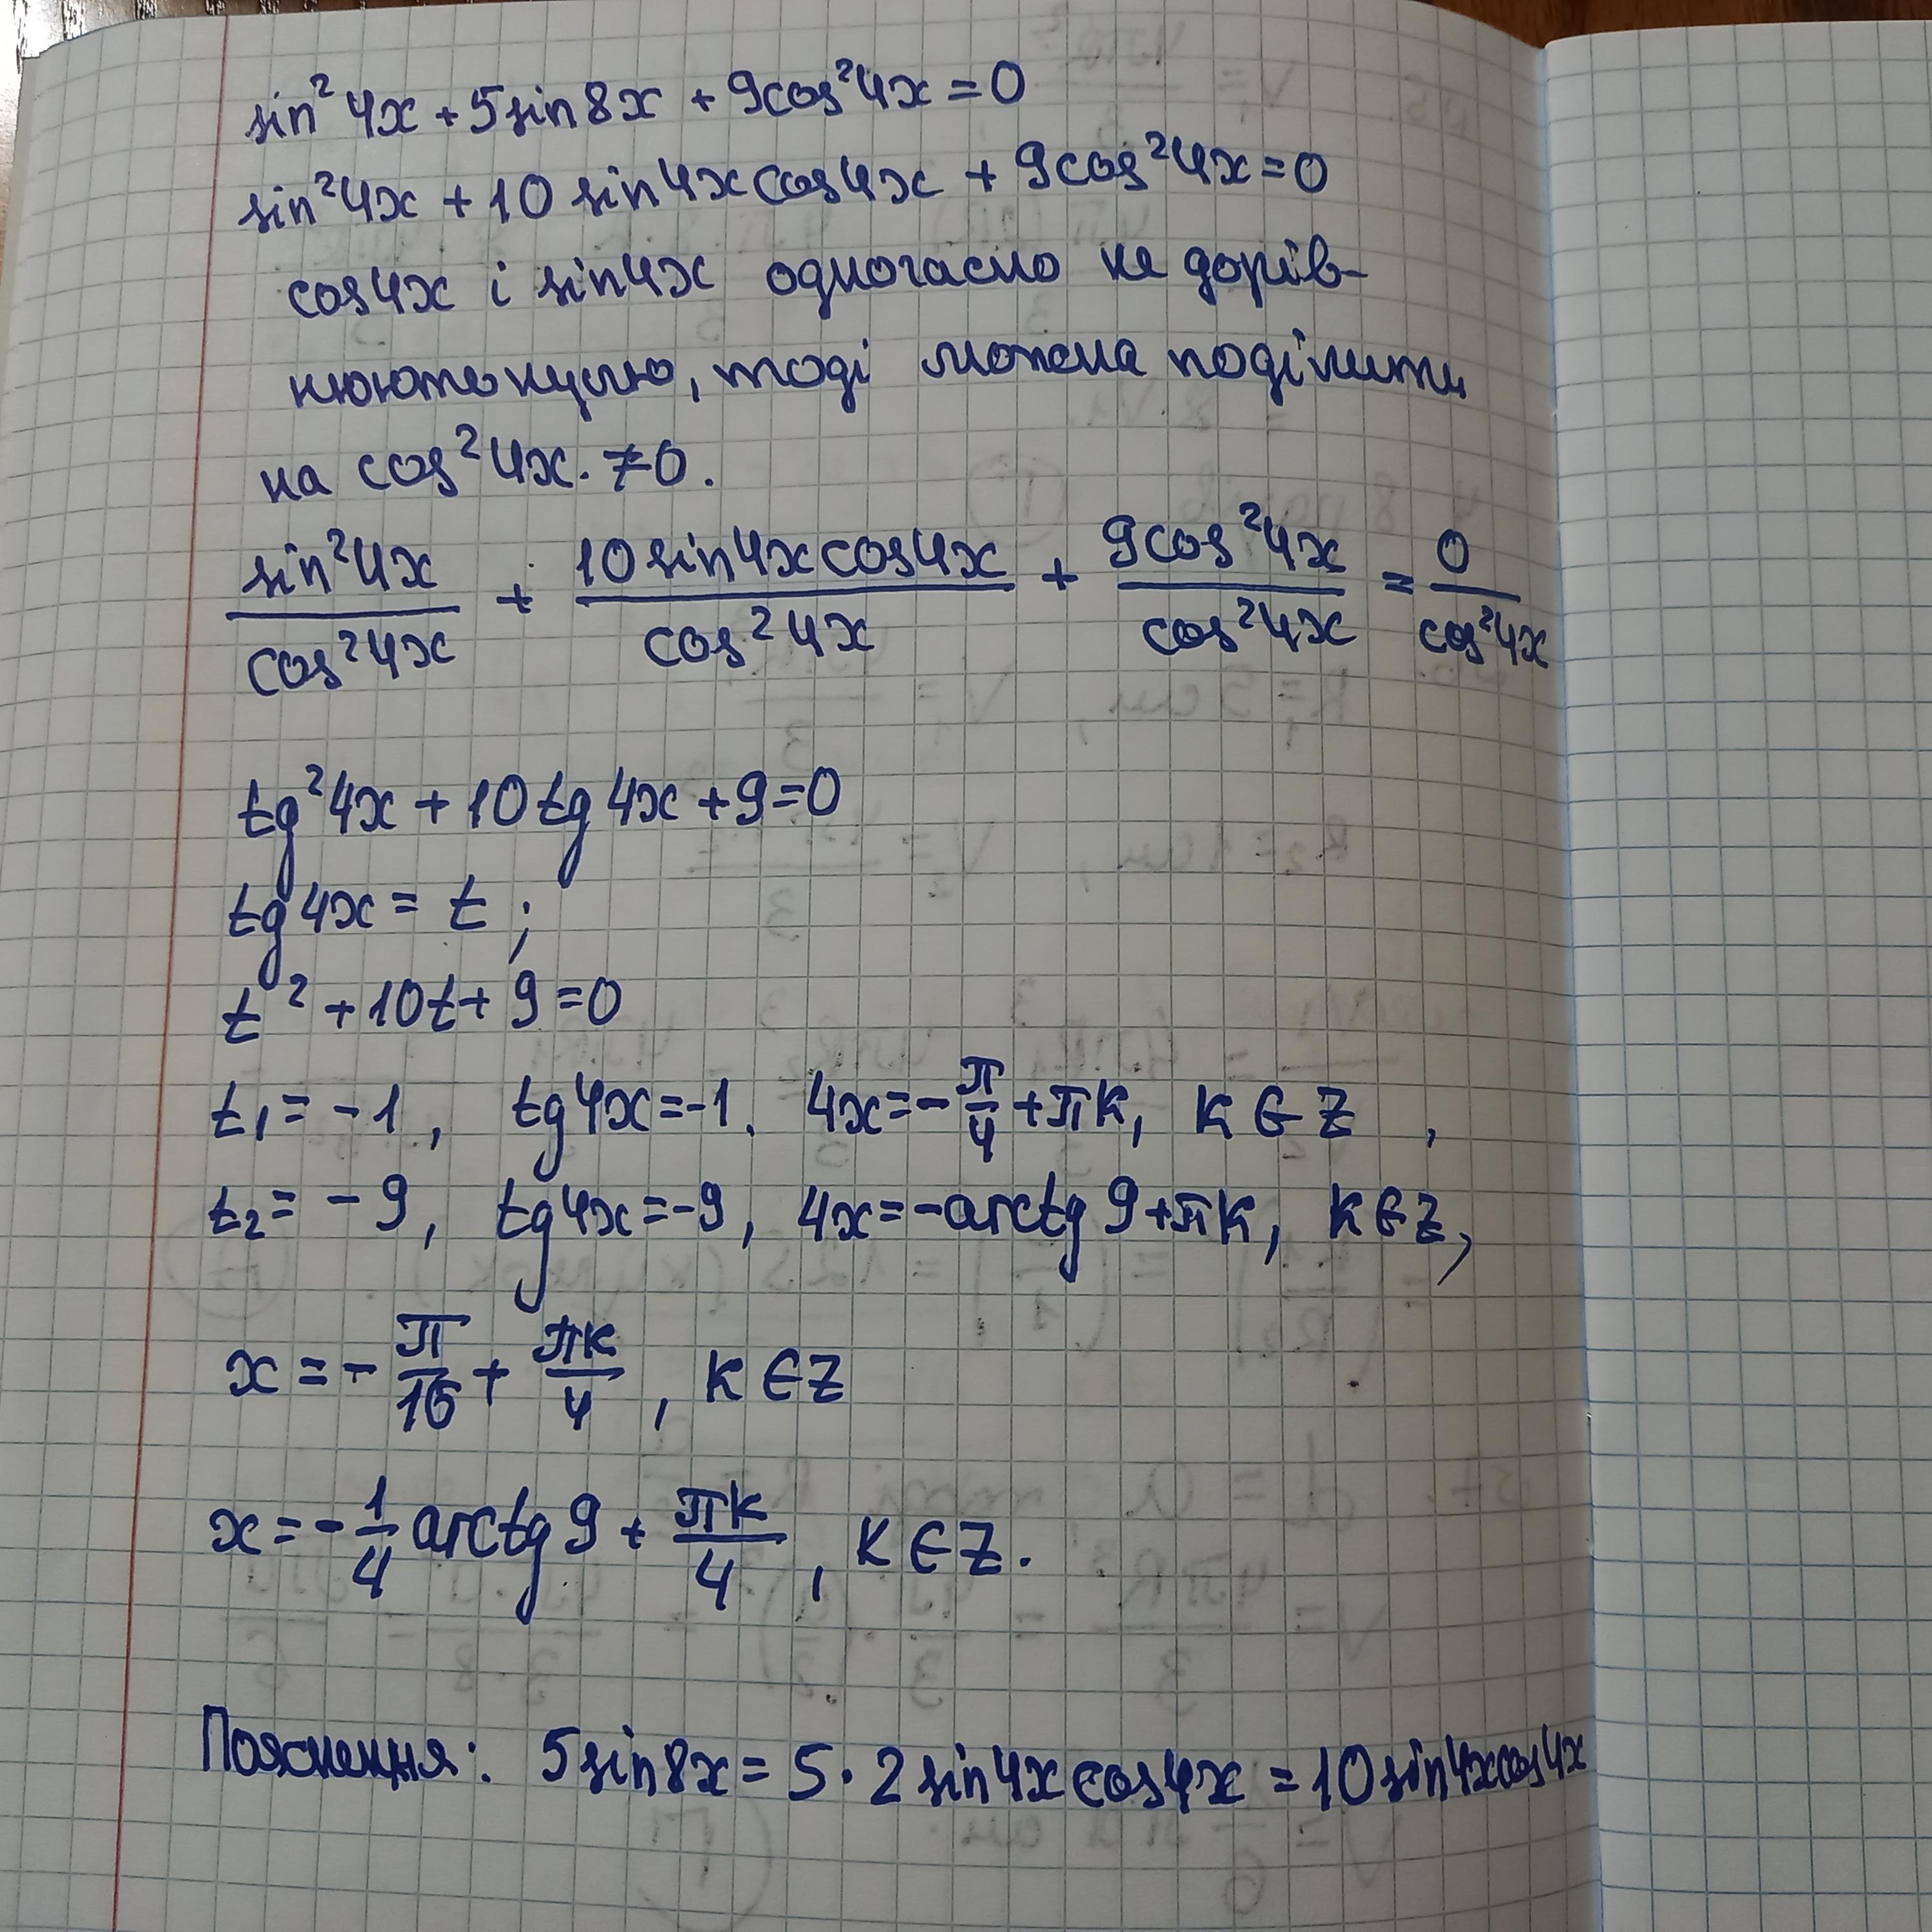 sin²4x + 5sin8x + 9cos²4x = 0
sin²4x + 10 sin4x cos4x + 9cos²4x = 0
cos4x і sin4x одночасно не дорів-
нюють нулю, тоді можна поділити
на cos²4x. ≠ 0.
sin²4x/cos²4x + 10sin4xcos4x/cos²4x + 9cos²4x/cos²4x = 0/cos²4x
tg²4x + 10tg4x + 9 = 0
tg4x = t;
t² + 10t + 9 = 0
t₁ = -1, tg4x = -1. 4x = -π/4 + πk, k ∈ Z,
t₂ = -9, tg4x = -9, 4x = -arctg 9 + πk, k ∈ Z,
x = -π/16 + πk/4, k ∈ Z
x = -1/4 arctg 9 + πk/4, k ∈ Z.
Пояснення: 5sin8x = 5·2sin4xcos4x = 10sin4xcos4x